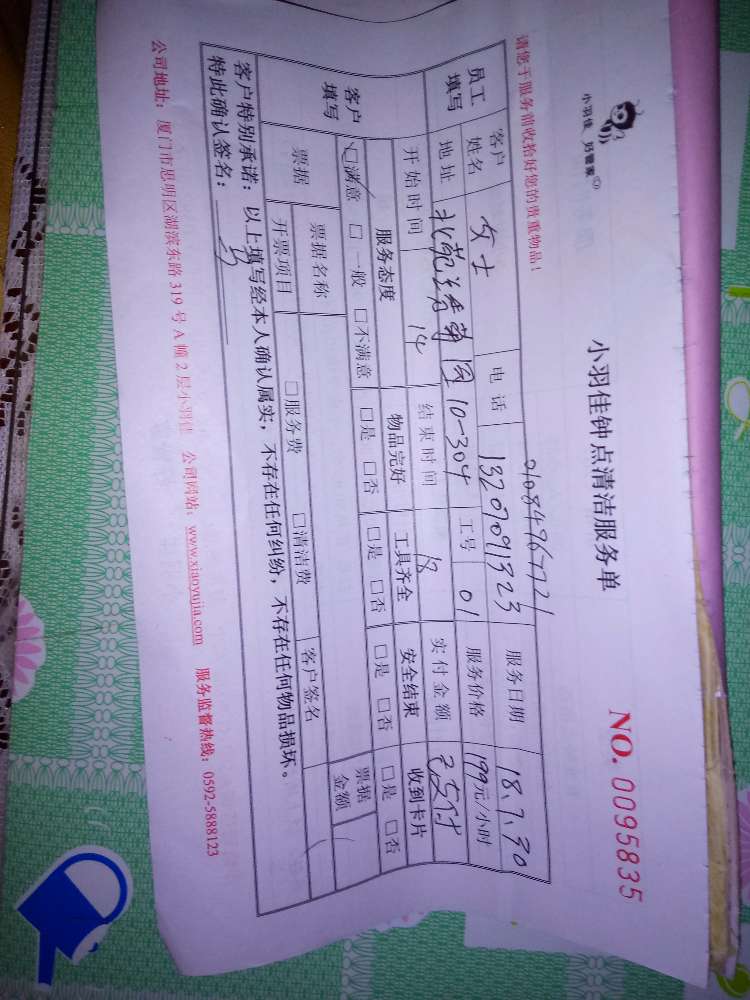 小羽佳 好管家
小羽佳钟点清洁服务单
NO. 0095835
请您于服务前收拾好您的贵重物品！
01084967721
员工填写 客户姓名 女士 电话 13207091323 服务日期 18.7.30
地址 北苑 10-304 工号 01 服务价格 199元/小时
开始时间 14 结束时间 18 实付金额 已支付
客户填写 服务态度 物品完好 工具齐全 安全结束 收到卡片
☑满意 □一般 □不满意 □是 □否 □是 □否 □是 □否 □是 □否
票据 票据名称 客户签名 票据金额
开票项目 □服务费 □清洁费
客户特别承诺：以上填写经本人确认属实，不存在任何纠纷，不存在任何物品损坏。
特此确认签名：
公司地址：厦门市思明区湖滨东路 319 号 A 幢 2 层小羽佳 公司网站：www.xiaoyujia.com 服务监督热线：0592-5888123